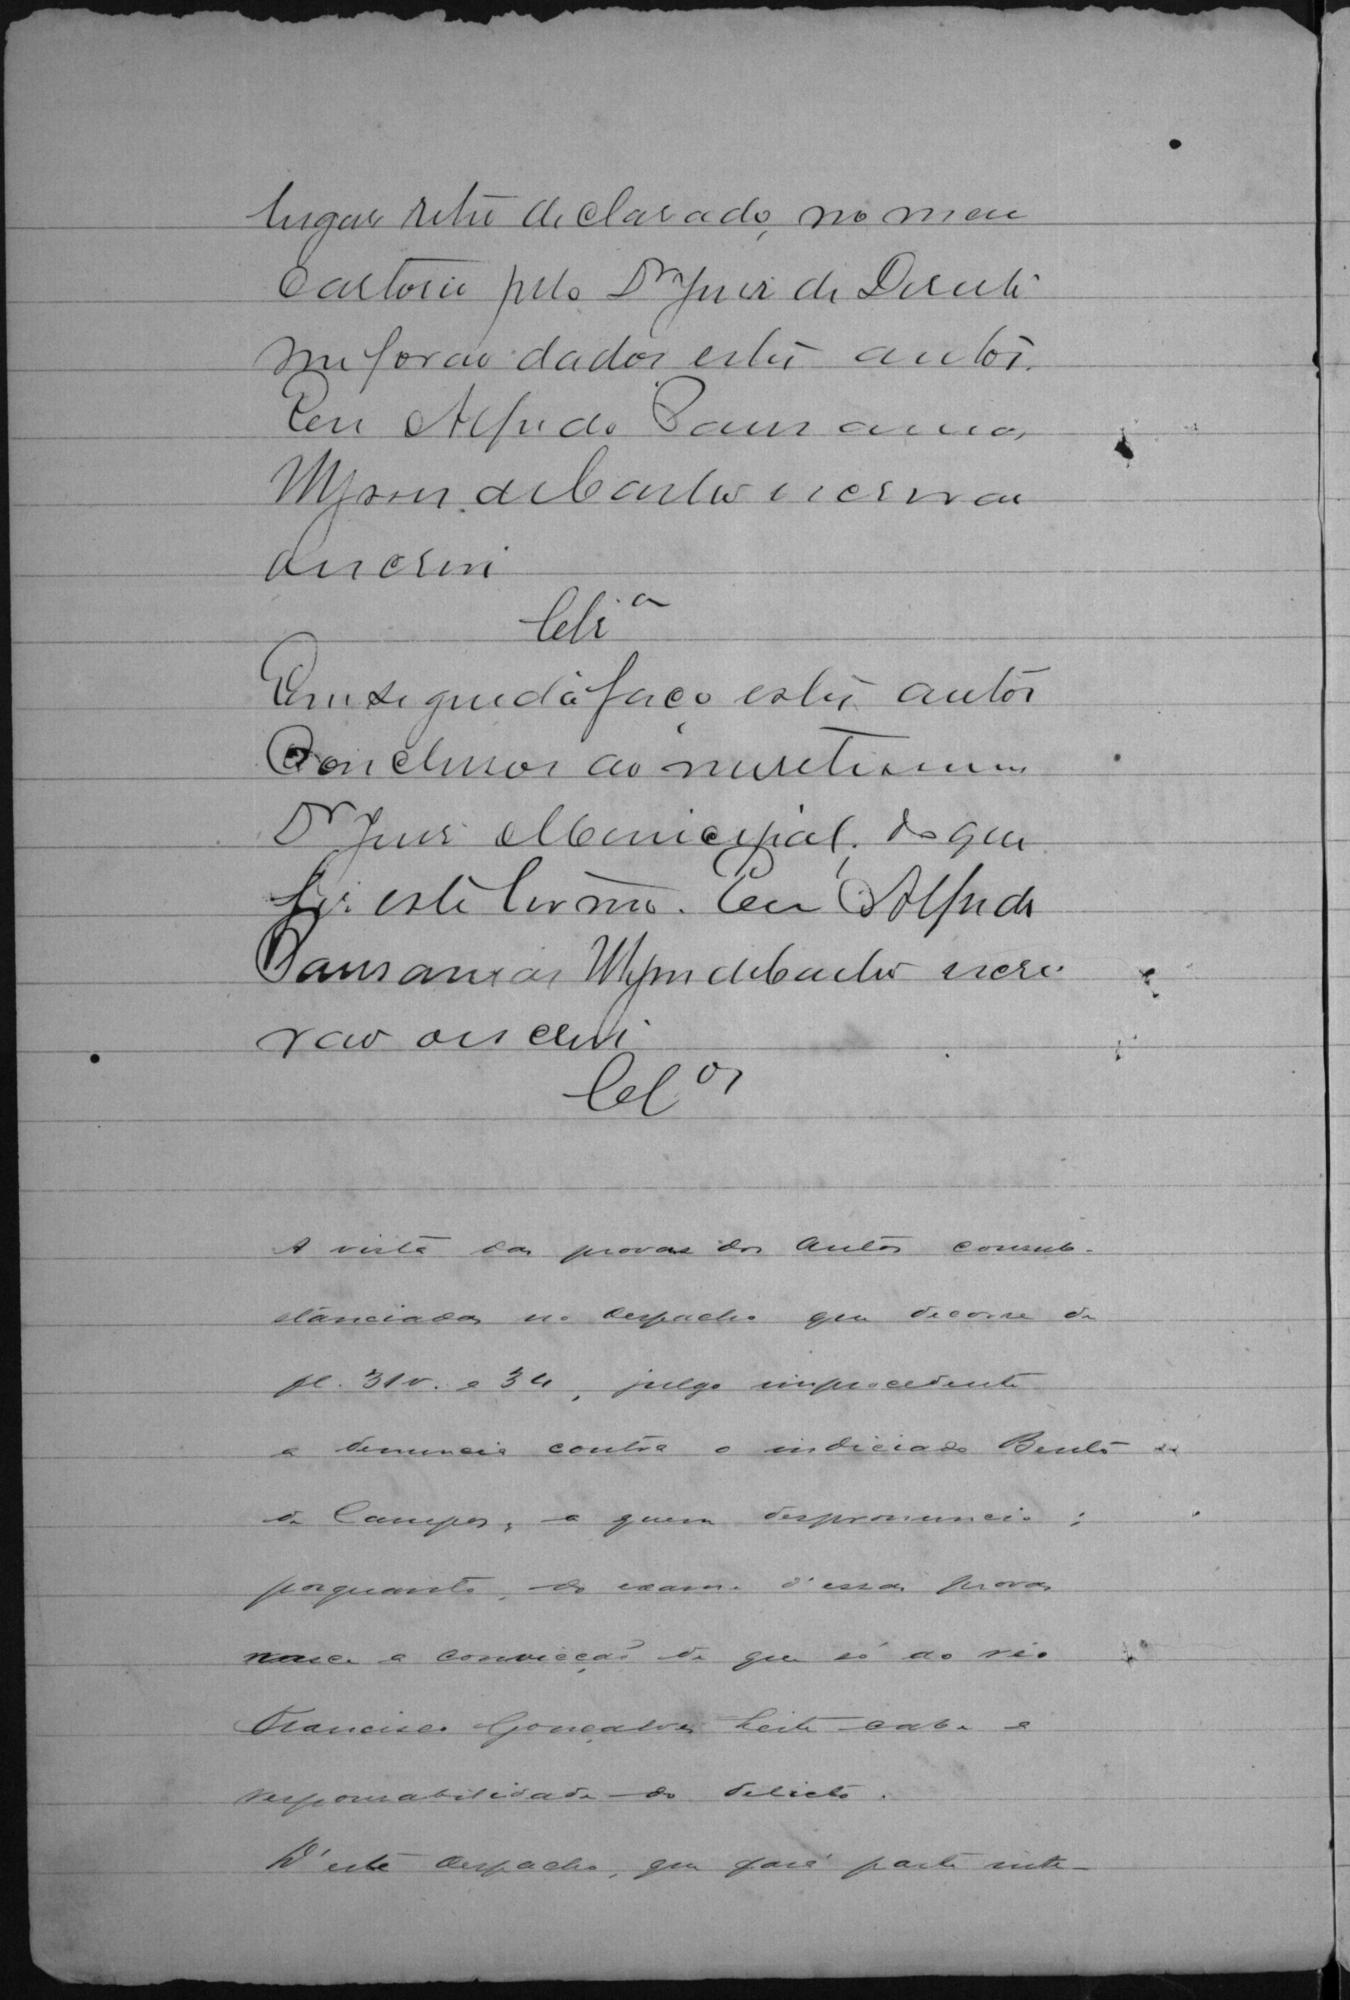 lugar retro declarado, no meu
Cartorio pelo Dr Juiz de Direito
me forão dados estes autos.
Eu Alfredo Pausanias
escrivão
o escrevi
Clsa
Em seguida faço estes autos
Conclusos ao meretissimo
Dr Juiz Municipal, do que
fiz este termo. Eu Alfredo
Pausanias escri-
vão o escrevi
Clos
A vista das provas dos autos consub-
stanciadas no despacho que decorre de
fl. 31v. a 34, julgo improcedente
a denuncia contra o indiciado Bento
de Campos, a quem despronuncio;
porquanto, do exame d'essas provas
nasce a convicção de que só ao réo
Francisco Gonçalves Leite cabe a
responsabilidade do delicto.
D'este despacho, que fará parte inte-